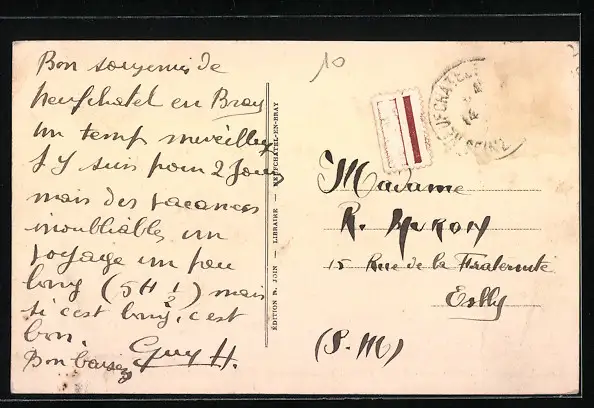 Bon souvenir de
Neufchatel en Bray
un temp merveilleux
J'y suis pour 2 jours
mais des vacances
inoubliables, un
voyage un peu
long (5H 1/2) mais
si c'est long, c'est
bon.
Bon baisers Guy H.
ÉDITION R. JOIN — LIBRAIRE — NEUFCHATEL-EN-BRAY
10
NEUFCHATEL
Madame
R. Muron
15 Rue de la Fraternité
Esbly
(S. M)